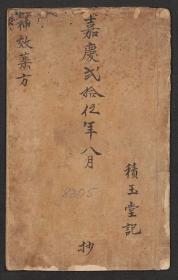 嘉慶弍拾伍年八月
積玉堂記
抄
效藥方
8205